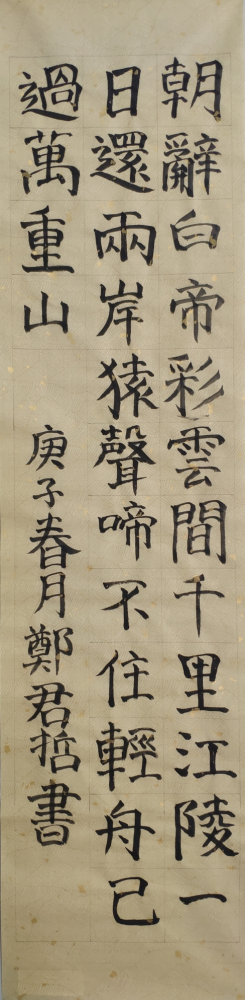 朝辭白帝彩雲間千里江陵一
日還兩岸猿聲啼不住輕舟已
過萬重山
庚子春月鄭君哲書